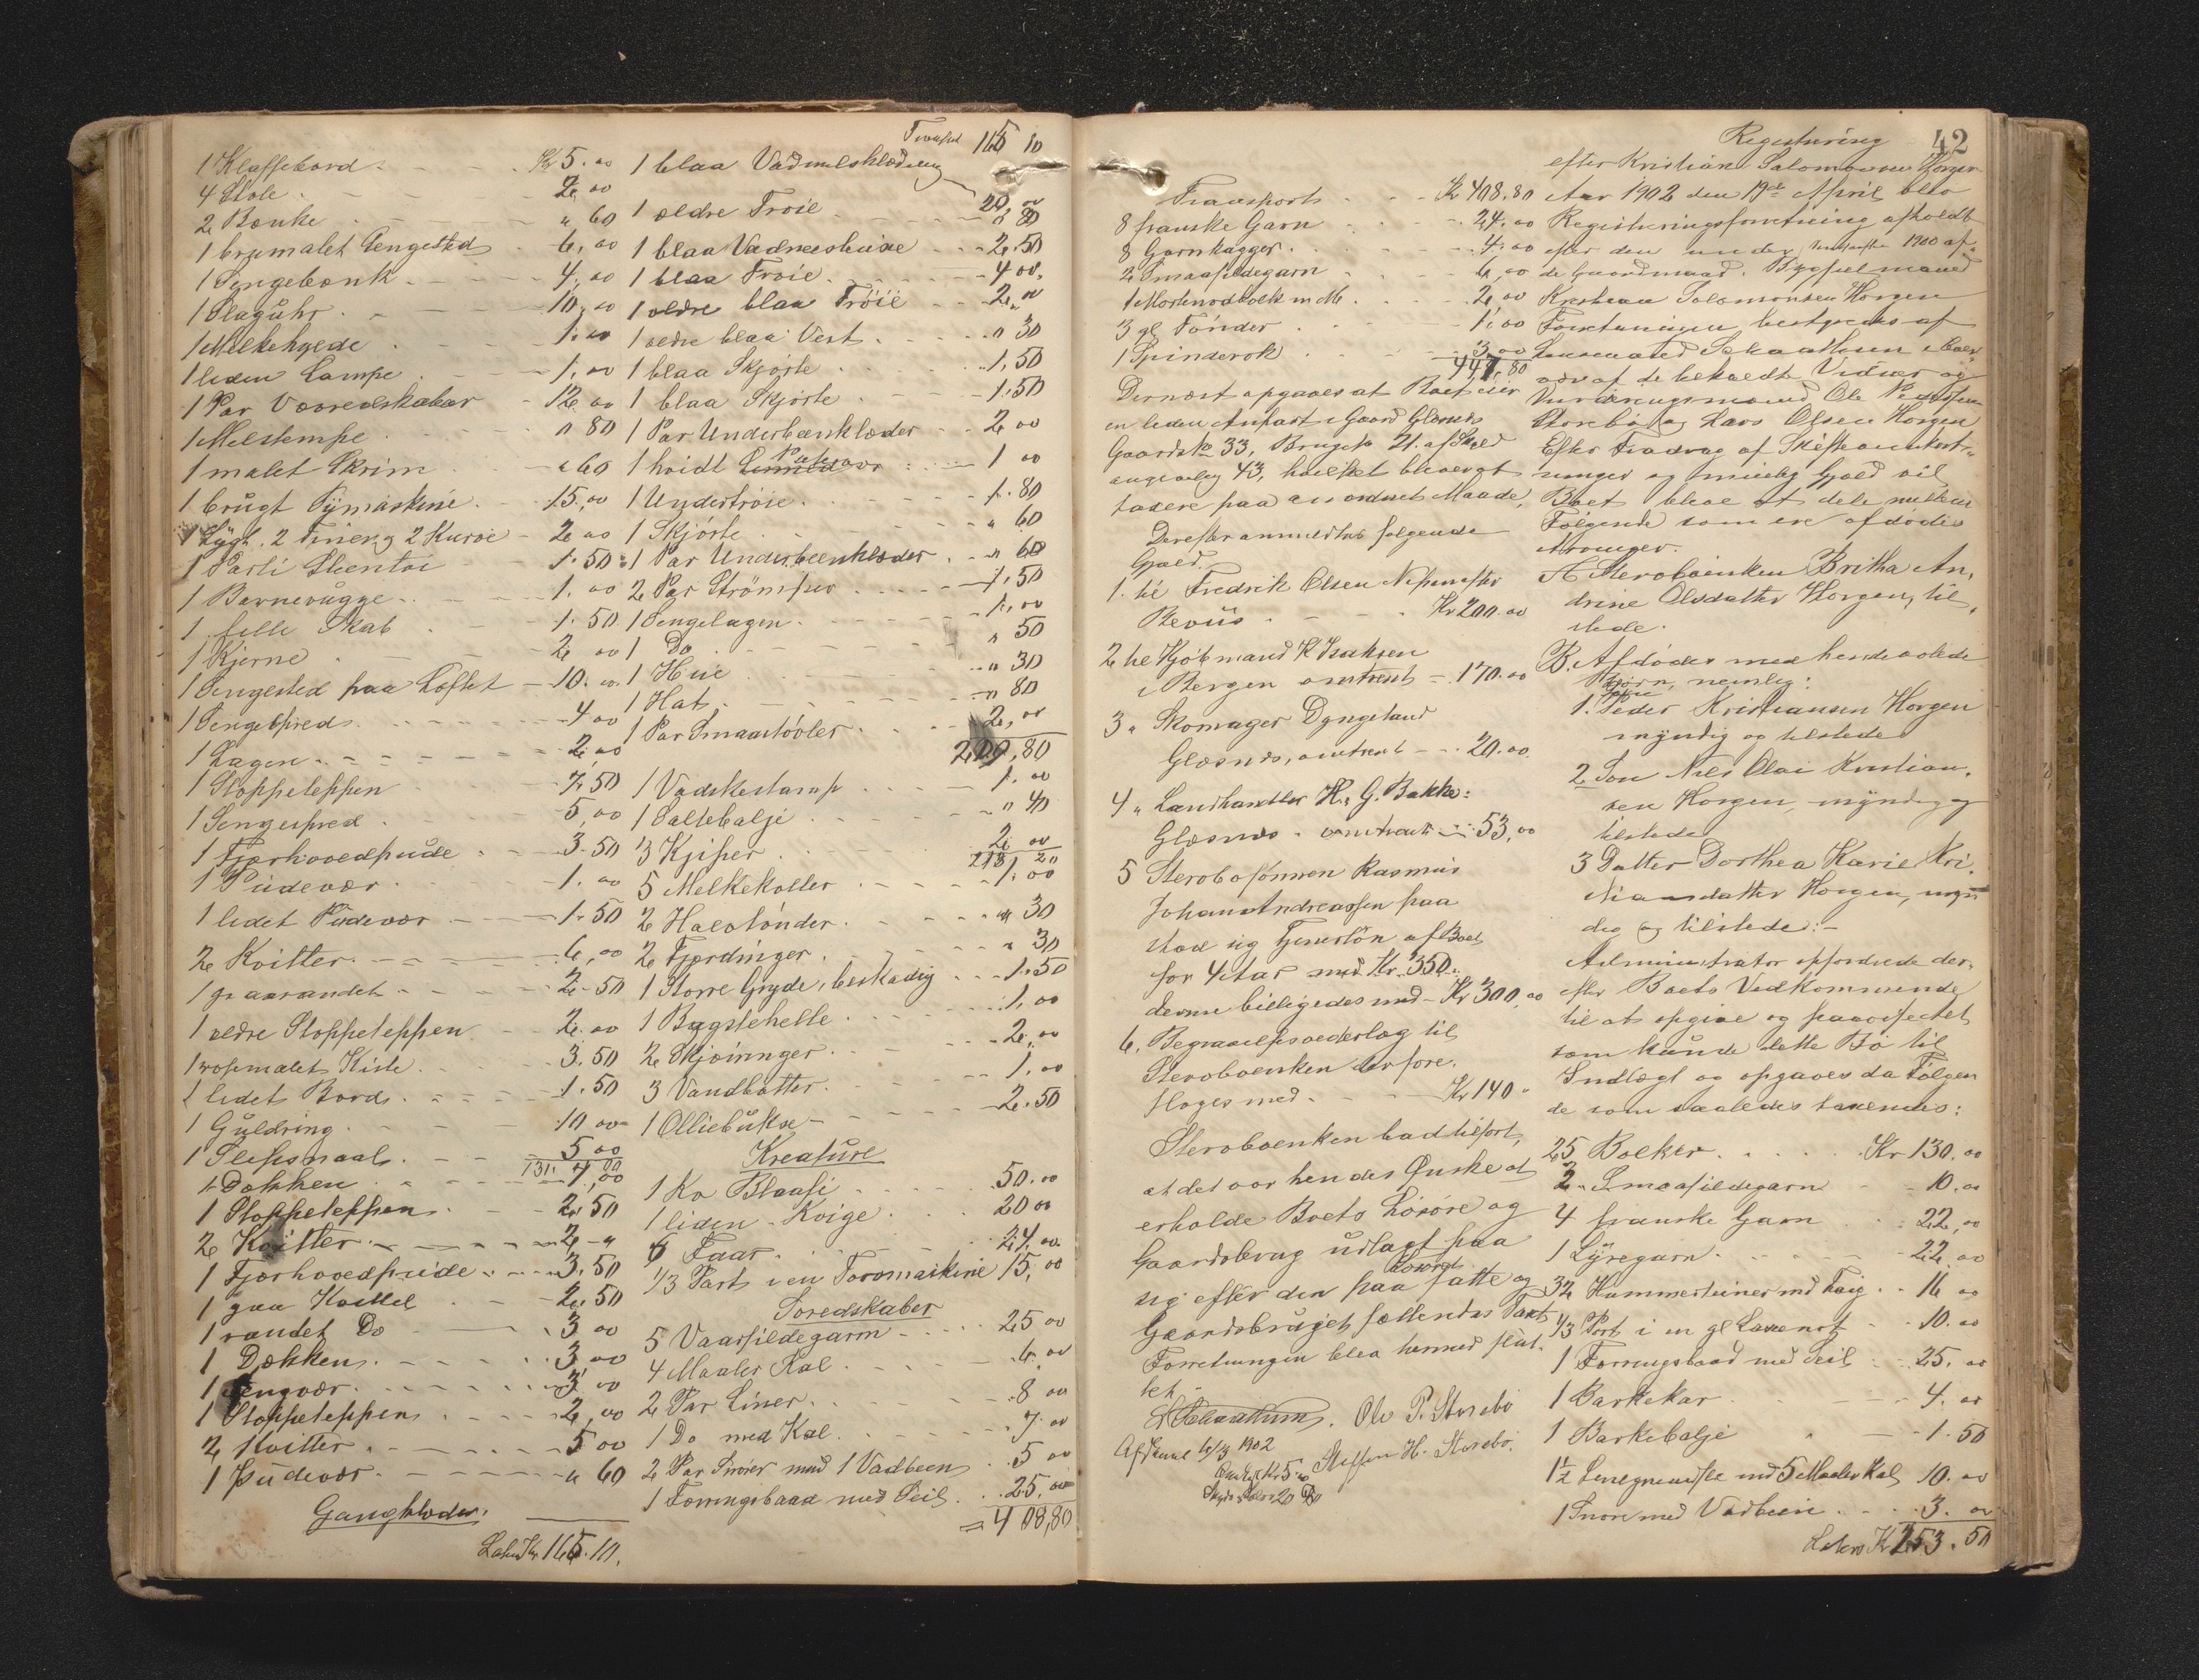 1 Klaffebord Kr 5.00
4 Stole 2,00
2 Bænke " 60
1 brunmalet Sengested 6,00
1 Sengebænk 4,00
1 Slaguhr 10,00
1 Melkehylde 1.00
1 liden Lampe 1,00
1 Par Væveredskaber 12 00
1 Melstampe " 80
1 malet Skrin " 60
1 brugt Symaskine 15,00
1 Lygt. 2 Tiner og 2 Kurve 2 00
1 Parti Steentøi 1.50
1 Barnevugge 1.00
1 Skab 1.50
1 Kjerne 2 00
1 Sengested paa Loftet 10.00
1 Sengespred 4 00
1 Lagen 2,00
1 Stoppeteppen 7,50
1 Sengespred 5,00
1 Fjærhovedpude 3.50
1 Pudevær 1.00
1 lidet Pudevær 1.50
2 Kvitler 6,00
1 graarandet 2.50
1 ældre Stoppeteppen 2.00
1 rosemalet Kiste 3.50
1 lidet Bord 1.50
1 Guldring 10 00
1 Slipsnaal 5 00
131.
1 Dækken 4,00
1 Stoppeteppen 2.50
2 Kvitler 2 "
1 Fjærhovedpude 3.50
1 graa Kvittel 2.50
1 randet Do 3 00
1 Dækken 3,00
1 Sengvær 3 00
1 Stoppeteppen 2,00
2 Kvitler 5 00
1 Pudevær " 60
Gangklæder.
Latus Kr 165.10.
Transport 165 10
1 blaa Vadmelsklædning 20,00
1 ældre Trøie " 80
1 blaa Vadmelsbuxe 2.50
1 blaa Trøie 4 00.
1 ældre blaa Trøie 2,"
1 ældre blaa Vest " 30
1 blaa Skjorte 1,50
1 blaa Skjorte 1.50
1 Par Underbenklæder 2 00
1 hvidt 1 00
1 Undertrøie 1.80
1 Skjorte " 60
1 Par Underbeenklæder " 60
2 Par Strømper 1.50
1 Sengelagen 1,00
1 Do " 50
1 Hue " 30
1 Hat " 80
1 Par Smaastøvler 2,00
209,80
1 Vadskestamp 1.00
1 Saltebalje " 40
3 Kjiper 2 00
213 20
5 Melkekoller 1.00
2 Halvtønder " 30
2 Fjerdinger " 30
1 Større Gryde, beskadig 1.50
1 Bagstehelle 1,00
2 Skjæringer 2,00
3 Vandbøtter 1.00
1 Olliebukse 2.50
Kreature
1 Ko Blaasi 50.00
1 liden Kvige 20 00
6 Faar 24,00
1/3 Part i en Toromaskine 15,00
Soredskaber
5 Vaarsildegarn 25 00
4 Maaler Kal 6.00
2 Par Liner 8 00
1 Do med Kal 7.00
2 Par Snører med 1 Vadbeen 5 00
1 Færingsbaad med Seil 25,00
408,80
Transport Kr 408.80
8 franske Garn 24.00
8 Garnkagger 4.00
2 Smaasildegarn 6,00
1 m M. 2,00
3 gl Tønder 1,00
1 Spinderok 3,00
447,80
Dernæst opgaves at Boet eier
en liden Anpart i Gaard Glesnes
Gaards No 33, Brugs No 21. af Skyld
angivelig 43, hvilket blev at
taxere paa anordnet Maade,
Derefter anmeldtes følgende
Gjæld.
1. til Fredrik Olsen
Kr 200.00
2 til Kjøbmand K Isaksen
i Bergen omtrent 170.00
3 " Skomager Dyngeland
Glæsnes, omtrent 20.00
4 " Landhandler H. G. Bakke
Glesnes omtrent 53,00
5 Stervbosønnen Rasmus
Johan Andreassen paa
stod sig Tjenerløn af Boet
for 4 Aar med Kr 350.
denne billigedes med Kr 300,00
6, Begravelsesvederlag til
Stervboenken
med Kr 140
Stervboenken bad tilført,
at det var hendes Ønske at
erholde Boets Løsøre og
Gaardsbrug udlagt paa
sig efter den paa Løsøret satte og
Gaardsbruget fættendes Taxt
Forretningen blev hermed slut-
tet.
Ole P. Storebø
Steffen H. Storebø.
6/3 1902
42
Registrering
efter Kristian Salomonsen Horgen
Aar 1902 den 19de April blev
Registreringsforretning afholdt
efter den under 1900 af-
de Gaardmand. Bygselmand
Kristian Salomonsen Horgen
Forretningen bestyredes af
Lensmand i Over
vær af de bekaldte Vidner og
Vurderingsmænd Ole Pedersen
Storebø og Lars Olsen Horgen
Efter Fradrag af Skifteomkost-
ninger og mulig Gjæld vil
Boet blive at dele mellem
Følgende som ere afdødes
Arvinger.
A Stervboenken Britha An,
drine Olsdatter Horgen, til,
stede.
B. Afdødes med hende avlede
Børn, nemlig:
1. Søn Peder Kristiansen Horgen
myndig og tilstede
2 Søn Nils Olai Kristian,
sen Horgen, myndig og
tilstede
3 Datter Dorthea Karie Kri,
stiansdatter Horgen, myn
dig og tilstede.-
Administrator opfordrede der,
efter Boets Vedkommende
til at opgive og fremvise alt
som kunde dette Bo til
Indtægt og opgaves da Følgen
de som saaledes taxeredes:
25 Bolker Kr 130.00
2 Smaasildegarn 10.00
4 franske Garn 22,00
1 Lyregarn 22.00
32 Hummerteiner med Taug 16 00
1/3 Part i en gl Laxenot 10.00
1 Færringsbaad med Seil 25.00
1 Barkekar 4.00
1 Barkebalje 1.50
1½ med 5 Maaler Kal 10.00
1 Snøre med Vadbeen 3.00
Latus Kr 253.50